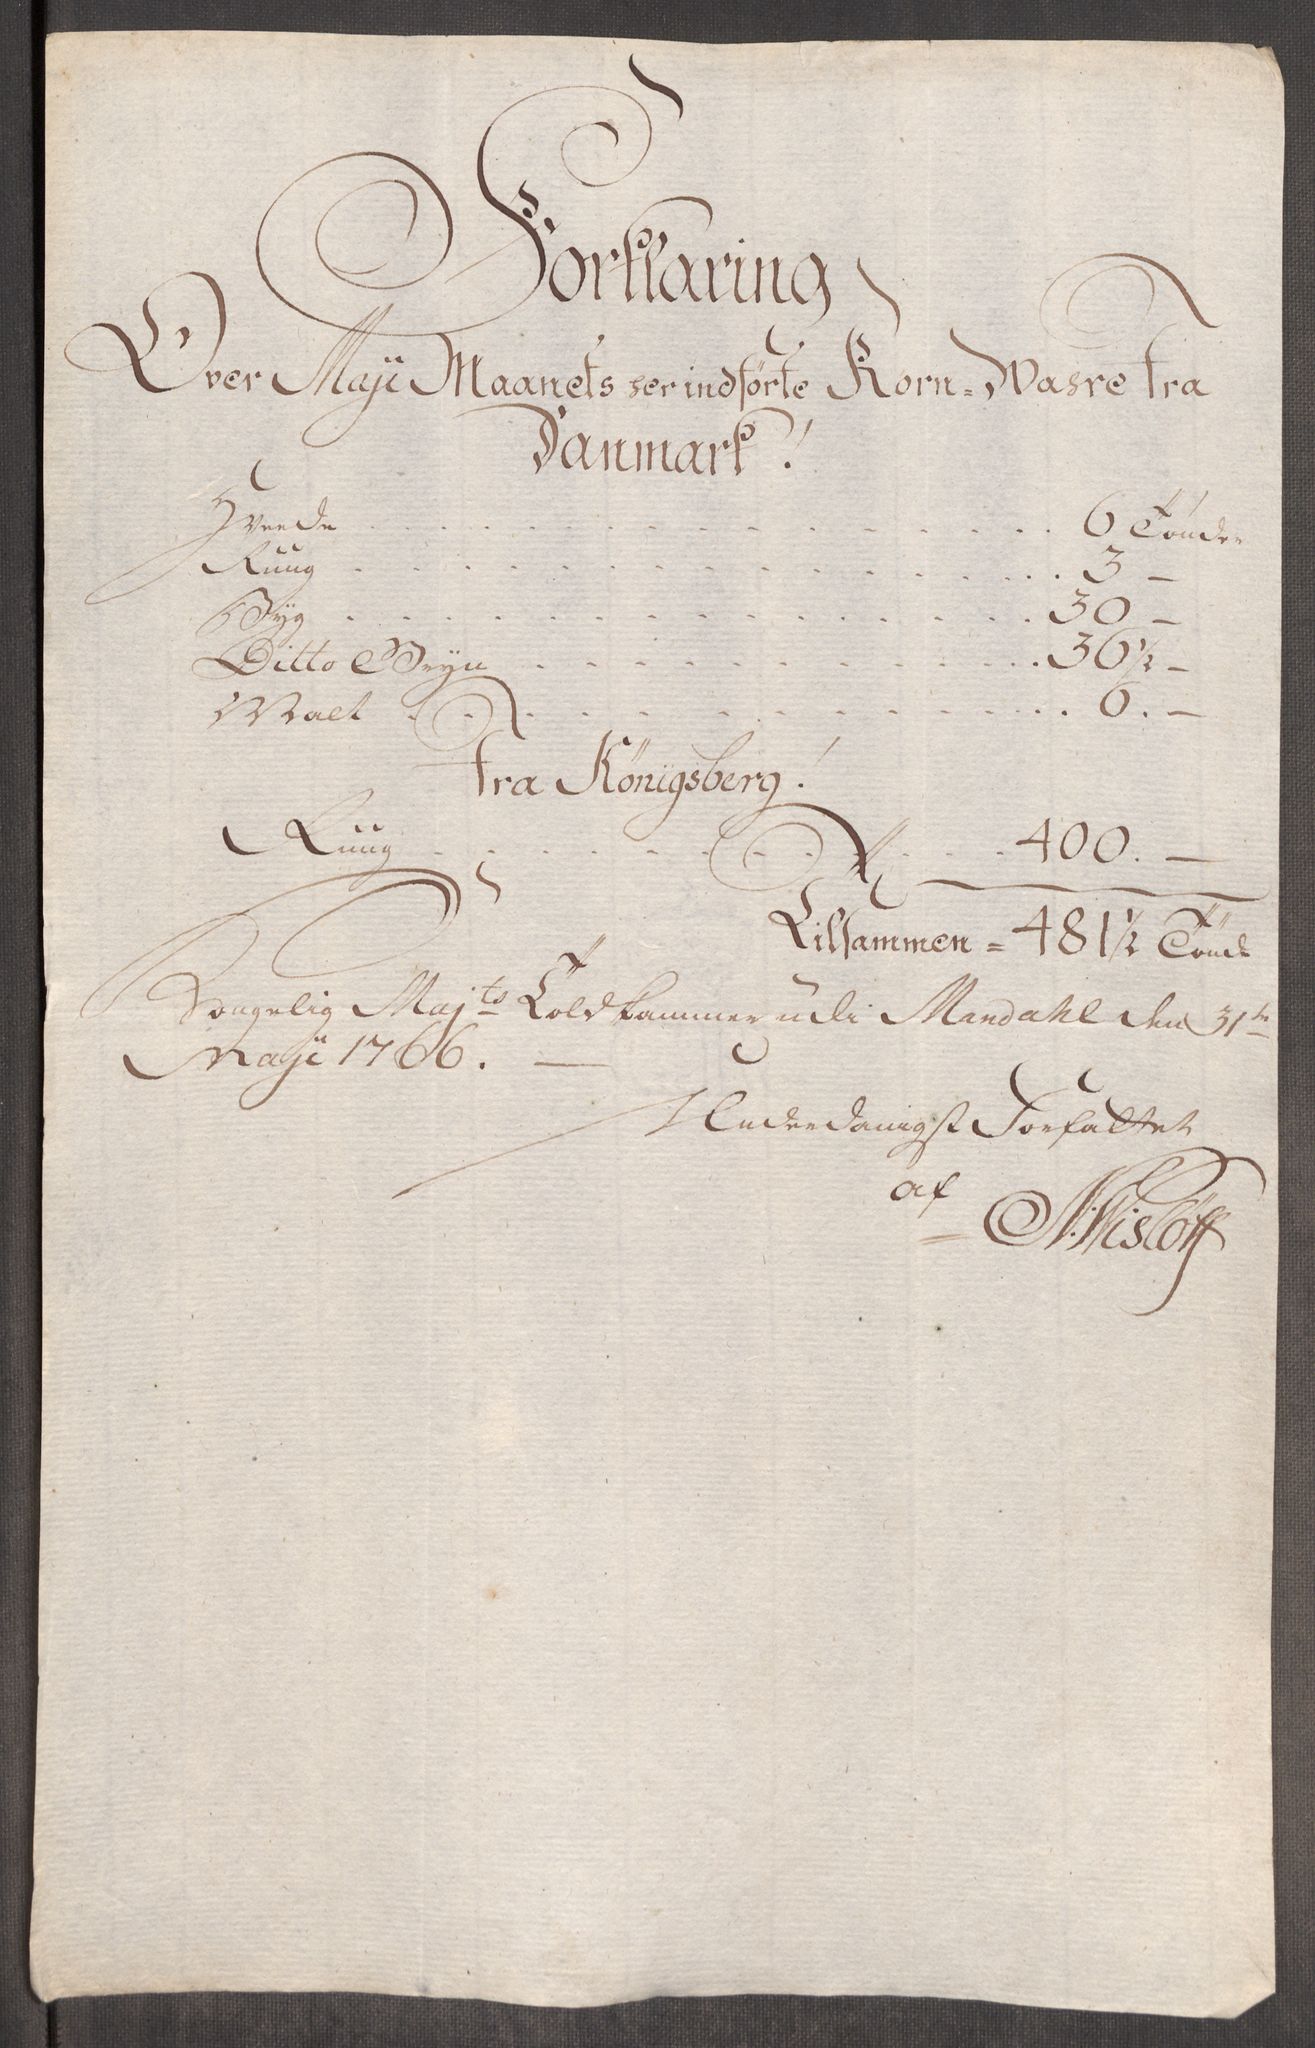 Forklaring
Over Maji Maanets her indførte Korn=Wahre fra
Danmark!
Hvede . . . 6 Tønder
Ruug . . . 3 —
Byg . . . 30 —
Ditto Gryn . . . 36½ —
Malt . . . 6. —
fra Königsberg!
Ruug . . . 400. —
Tilsammen = 481½ Tønde
Kongelig Majts Toldkammer udi Mandahl den 31te
Maji 1766. —
Underdanigst Forfattet
af
N: Wisløff